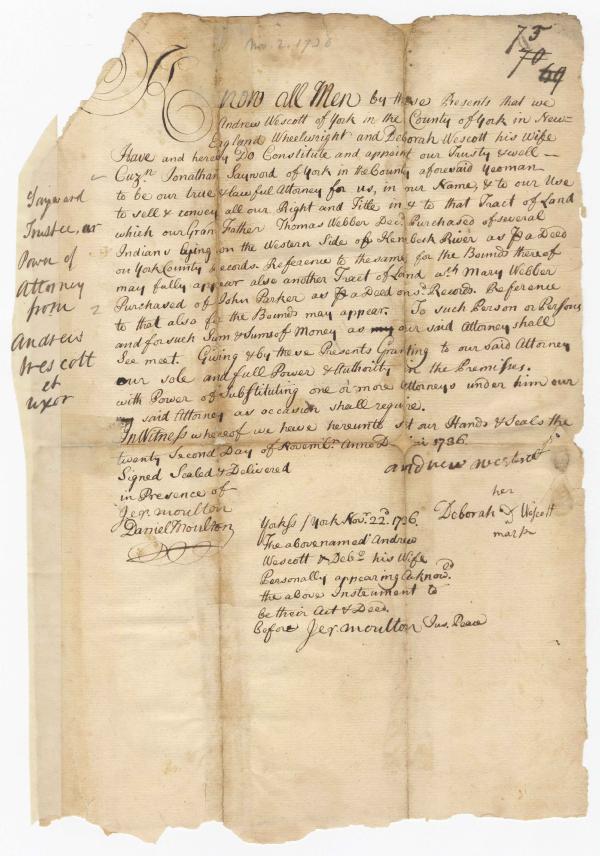 Nov. 2. 1736
75
70
69
Know all Men by these Presents that we
Andrew Wescott of York in the County of York in New=
England Wheelwright and Deborah Wescott his Wife
Have and hereby Do Constitute and appoint our Trusty & well
Cuz.n Jonathan Sayword of York in the County aforesaid Yeoman
to be our true & lawful Attorney for us, in our Name, & to our Use
to sell & convey all our Right and Title in & to that Tract of Land
which our Gran Father Thomas Webber Dec.d Purchased of several
Indians lying on the Western Side of Kenebeck River as P a Deed
on York County Records. Reference to the same for the Bounds thereof
may fully appear also another Tract of Land wch Mary Webber
Purchased of John Parker as P a Deed on sd. Records. Reference
to that also for the Bounds may appear. To such Person or Persons
and for such Sum & Sums of Money as my our said Attorney shall
See meet. Giving & by these Presents Granting to our said Attorney
our sole and full Power & Authority in the Premises.
with Power of Substituting one or more Attorneys under him our
my said Attorney as occasion shall require.
In Witness whereof we have hereunto set our Hands & Seals the
twenty Second Day of Novembr. Anno D 1736.
Signed Sealed & Delivered
in Presence of
Jer. Moulton
Daniel Moulton
andrew wescott
her
Deborah D Wescott
mark
Yorkss / York Novr. 22d. 1736.
The above named Andrew
Wescott & Debo. his Wife
Personally appearing Acknowd.
the above Instrument to
be their Act & Deed.
before Jer. Moulton Jus. Peace
Sayward
Trustee, as
Power of
Attorney
from
Andrew
Wescott
et
uxor